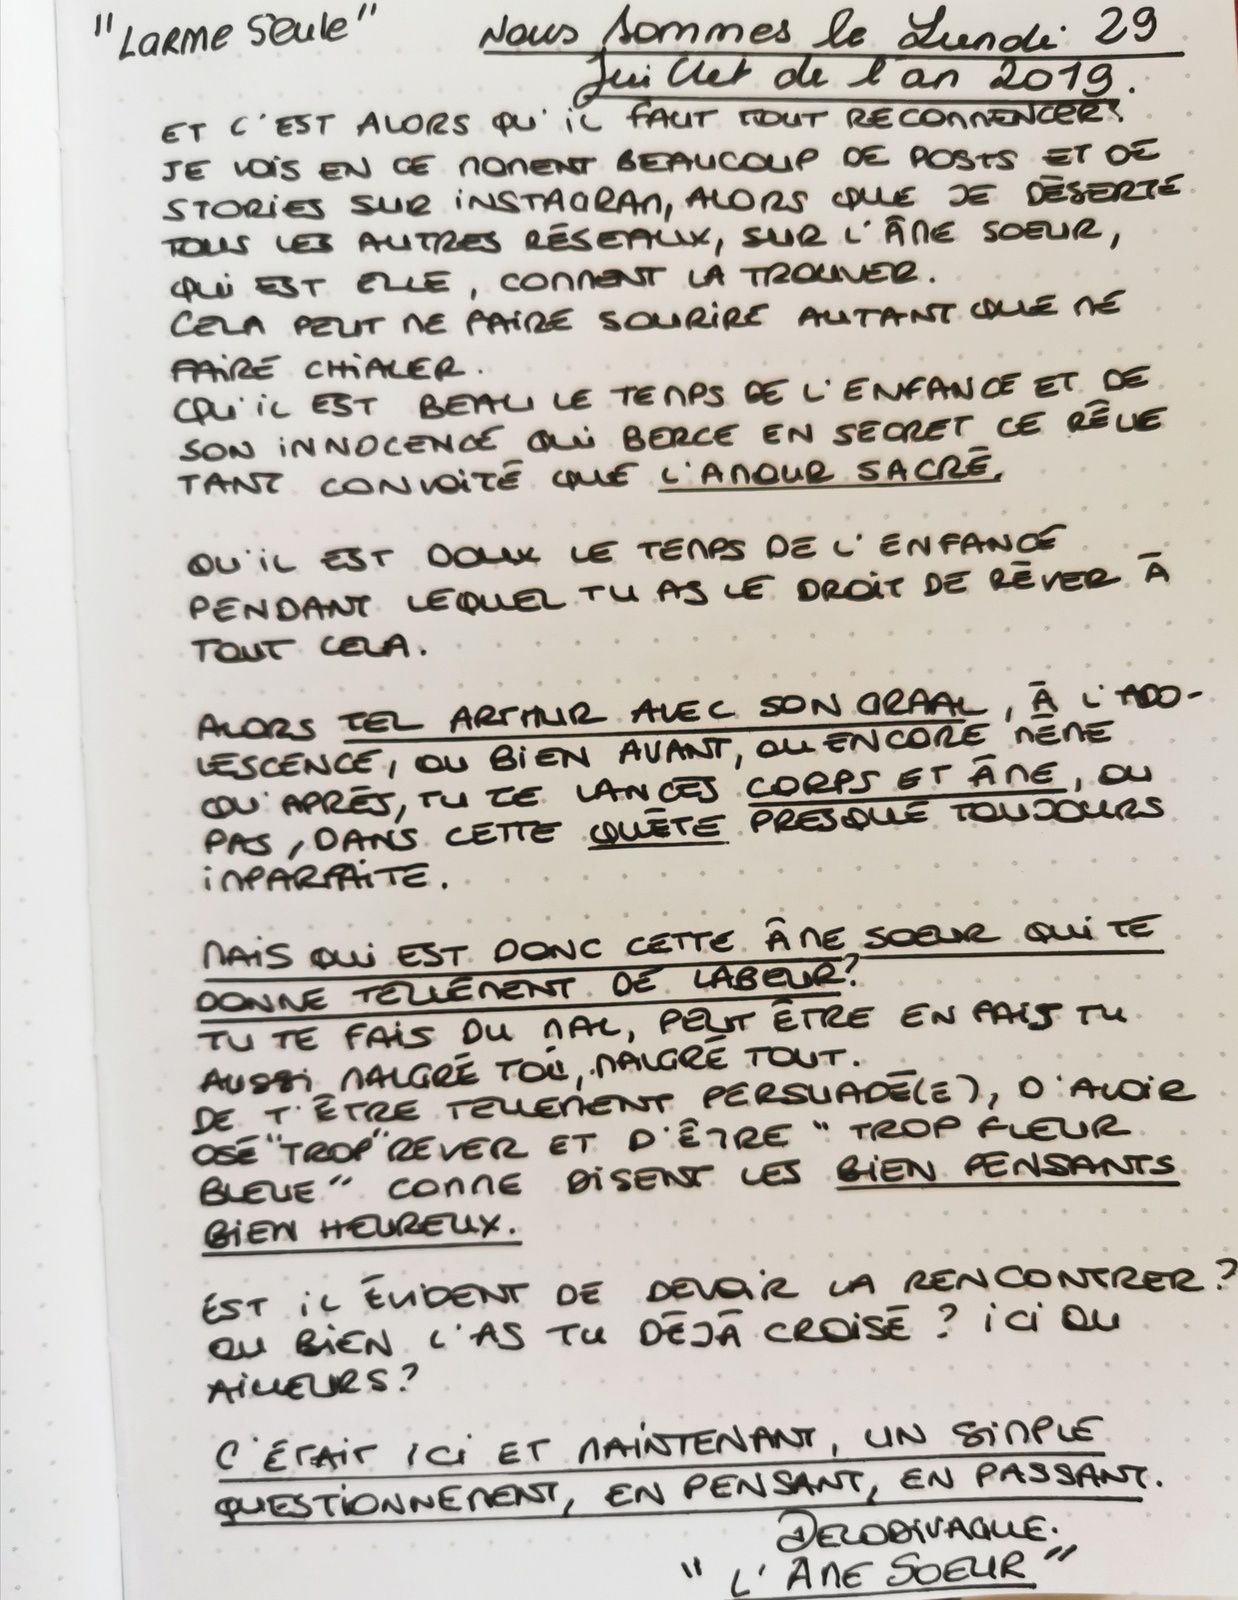 "Larme Seule"
Nous Sommes le Lundi 29
Juillet de l'an 2019.
ET C'EST ALORS QU'IL FAUT TOUT RECOMMENCER!
JE VOIS EN CE MOMENT BEAUCOUP DE POSTS ET DE
STORIES SUR INSTAGRAM, ALORS QUE JE DÉSERTE
TOUS LES AUTRES RÉSEAUX, SUR L'ÂME SOEUR,
QUI EST ELLE, COMMENT LA TROUVER.
CELA PEUT ME FAIRE SOURIRE AUTANT QUE ME
FAIRE CHIALER.
QU'IL EST BEAU LE TEMPS DE L'ENFANCE ET DE
SON INNOCENCE QUI BERCE EN SECRET CE RÊVE
TANT CONVOITÉ QUE L'AMOUR SACRÉ.
QU'IL EST DOUX LE TEMPS DE L'ENFANCE
PENDANT LEQUEL TU AS LE DROIT DE RÊVER À
TOUT CELA.
ALORS TEL ARTHUR AVEC SON GRAAL, À L'ADO-
LESCENCE, OU BIEN AVANT, OU ENCORE MÊME
QU'APRÈS, TU TE LANCES CORPS ET ÂME, OU
PAS, DANS CETTE QUÊTE PRESQUE TOUJOURS
IMPARFAITE.
MAIS QUI EST DONC CETTE ÂME SOEUR QUI TE
DONNE TELLEMENT DE LABEUR?
TU TE FAIS DU MAL, PEUT ÊTRE EN FAIS TU
AUSSI MALGRÉ TOI, MALGRÉ TOUT.
DE T'ÊTRE TELLEMENT PERSUADÉ(E), D'AVOIR
OSÉ "TROP" REVER ET D'ÊTRE "TROP FLEUR
BLEUE" COMME DISENT LES BIEN PENSANTS
BIEN HEUREUX.
EST IL ÉVIDENT DE DEVOIR LA RENCONTRER?
OU BIEN L'AS TU DÉJÀ CROISÉ? ICI OU
AILLEURS?
C'ÉTAIT ICI ET MAINTENANT, UN SIMPLE
QUESTIONNEMENT, EN PENSANT, EN PASSANT.
DELODIVAGUE.
"L'ÂME SOEUR"